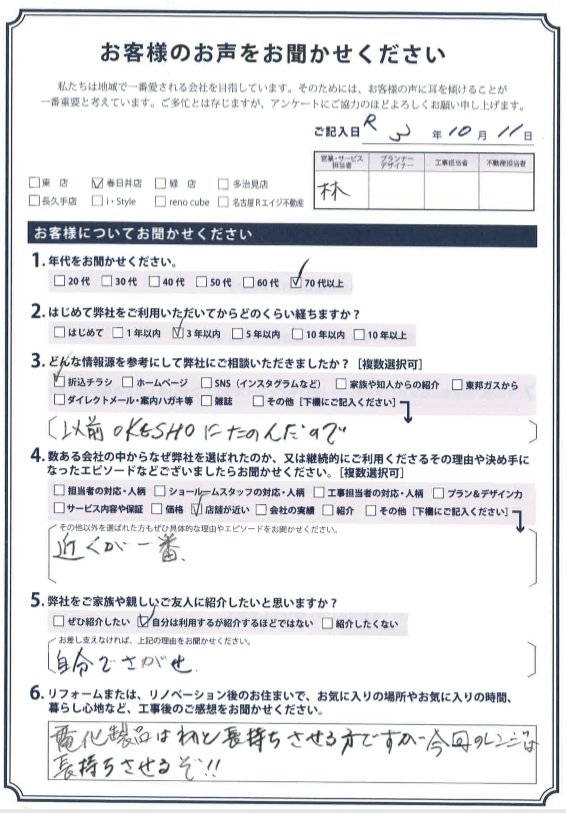 お客様のお声をお聞かせください
私たちは地域で一番愛される会社を目指しています。そのためには、お客様の声に耳を傾けることが
一番重要と考えています。ご多忙とは存じますが、アンケートにご協力のほどよろしくお願い申し上げます。
ご記入日 R 3 年 10 月 11 日
営業・サービス担当者 プランナーデザイナー 工事担当者 不動産担当者
林
□東 店 ☑春日井店 □緑 店 □多治見店
□長久手店 □i・Style □reno cube □名古屋Rエイジ不動産
お客様についてお聞かせください
1. 年代をお聞かせください。
□20代 □30代 □40代 □50代 □60代 ☑70代以上
2. はじめて弊社をご利用いただいてからどのくらい経ちますか?
□はじめて □1年以内 ☑3年以内 □5年以内 □10年以内 □10年以上
3. どんな情報源を参考にして弊社にご相談いただきましたか?[複数選択可]
☑折込チラシ □ホームページ □SNS(インスタグラムなど) □家族や知人からの紹介 □東邦ガスから
□ダイレクトメール・案内ハガキ等 □雑誌 □その他[下欄にご記入ください]
以前OKESHOにたのんだので
4. 数ある会社の中からなぜ弊社を選ばれたのか、又は継続的にご利用くださるその理由や決め手に
なったエピソードなどございましたらお聞かせください。[複数選択可]
□担当者の対応・人柄 □ショールームスタッフの対応・人柄 □工事担当者の対応・人柄 □プラン&デザイン力
□サービス内容や保証 □価格 ☑店舗が近い □会社の実績 □紹介 □その他[下欄にご記入ください]
その他以外を選ばれた方もぜひ具体的な理由やエピソードをお聞かせください。
近くが一番、
5. 弊社をご家族や親しいご友人に紹介したいと思いますか?
□ぜひ紹介したい ☑自分は利用するが紹介するほどではない □紹介したくない
お差し支えなければ、上記の理由をお聞かせください。
自分でさがせ
6. リフォームまたは、リノベーション後のお住まいで、お気に入りの場所やお気に入りの時間、
暮らし心地など、工事後のご感想をお聞かせください。
電化製品はわりと長持ちさせる方ですが今回のレンジは
長持ちさせるぞ!!